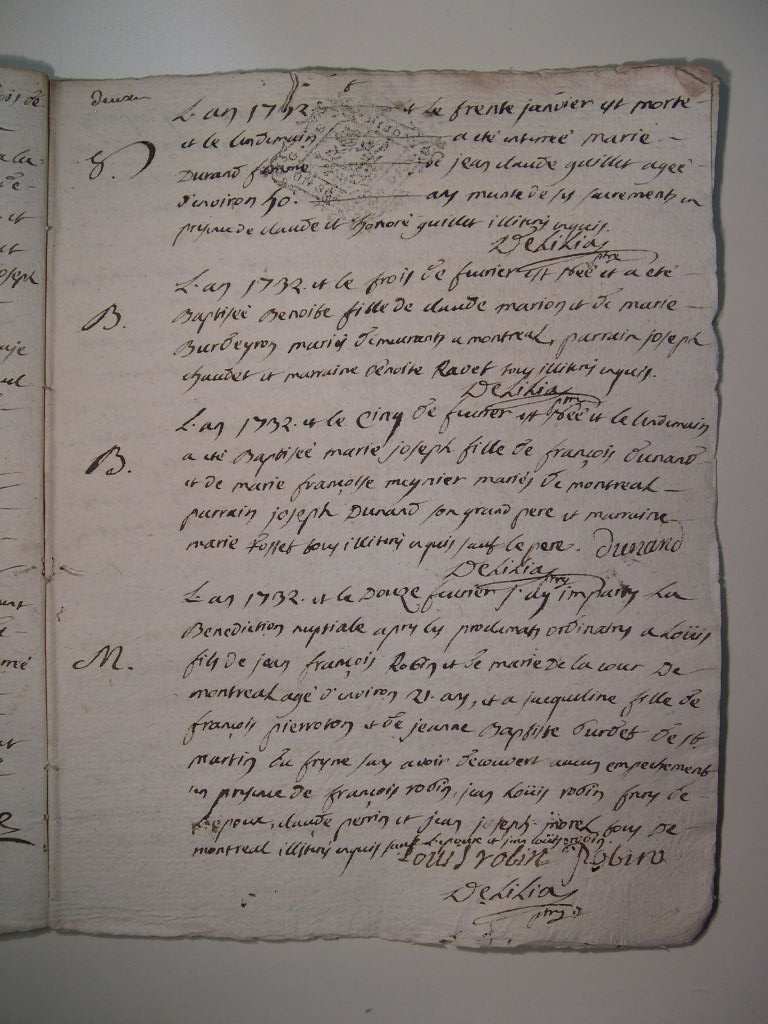 deux
L'an 1732. et le trente janvier est morte
et le lendemain a été enterreé marie
S. Durand femme de jean claude guillet ageé
d'environ 50. ans munie de ses sacrements en
presence de claude et honoré guillet illitérés enquis.
Delilia ptre
L'an 1732. et le trois de fevrier est née et a été
B. Baptiseé Benoite fille de claude marion et de marie
Burdeyron mariés demeurants a montreal, parrain joseph
chaudet et marraine benoite Ravet tous illiterés enquis.
Delilia ptre
L'an 1732. et le cinq de fevrier est née et le lendemain
B. a été Baptiseé marie joseph fille de françois dunand
et de marie françoise meynier mariés de montreal
parrain joseph Dunand son grand pere et marraine
marie Fosset tous illiterés enquis sauf le pere. Dunand
Delilia ptre
L'an 1732. et le Douze fevrier j'ay imparty La
Benediction nuptiale apres les proclamats ordinaires a Loüis
M. fils de jean françois Robin et de marie De la cour De
montreal agé d'environ 21. ans, et a jacqueline fille de
françois pierroton et de jeanne Baptiste burdet de st.
martin du fresne sans avoir decouvert aucun empechement
en presence de françois robin, jean Loüis robin freres de
L'epoux, claude perrin et jean joseph morel tous De
montreal illiterés enquis sauf L'epoux et jean loüis robin.
Louis robin Robin
Delilia ptre